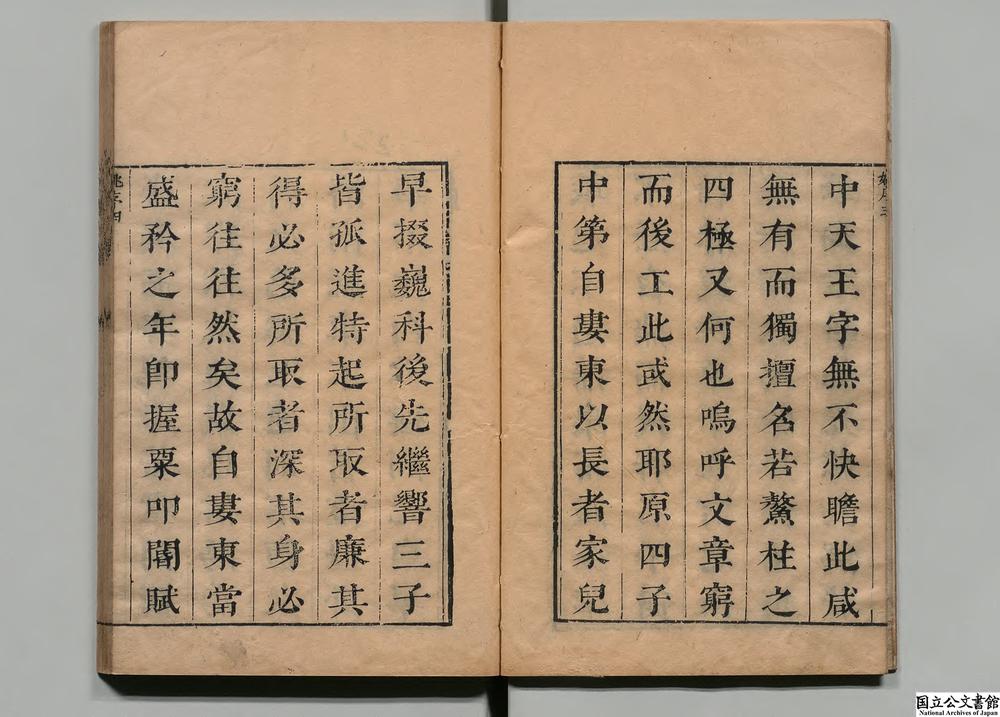 中天王字無不快瞻此咸
無有而獨擅名若鰲柱之
四極又何也嗚呼文章窮
而後工此或然耶原四子
中第自婁東以長者家兒
早掇巍科後先繼響三子
皆孤進特起所取者廉其
得必多所取者深其身必
窮往往然矣故自婁東當
盛矜之年卽握槖叩閽賦
国立公文書館
National Archives of Japan